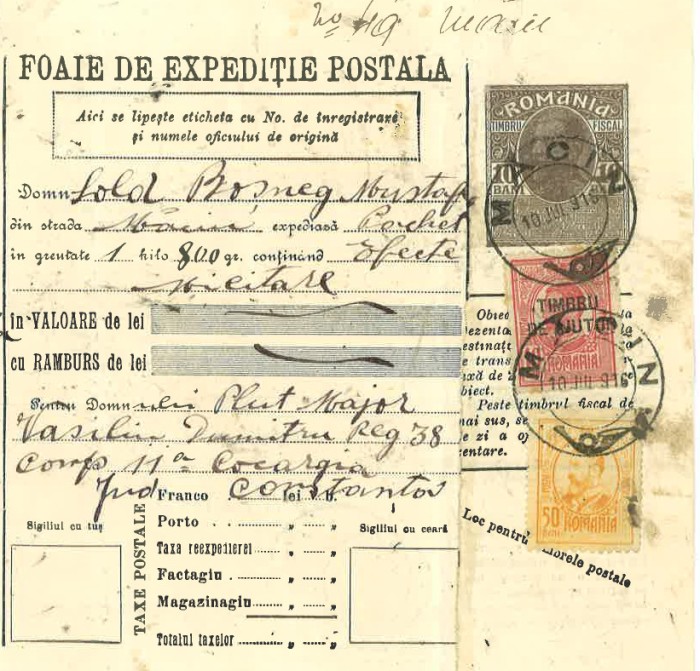 No 49 Măcin
FOAIE DE EXPEDIȚIE POSTALĂ
Aici se lipește eticheta cu No. de înregistrare
și numele oficiului de origină
Domnu Sold Bosneg Mustafa
din strada Măcin expediază Pachet
în greutate 1 kilo 800 gr. conținând Efecte
Militare
în VALOARE de lei
cu RAMBURS de lei
Pentru Domnului Plut Major
Vasiliu Dumitru Reg 38
Comp 11a Cocargia
Jud Constanta
Franco lei v. b.
Porto " "
Taxa reexpedierei " "
Factagiu " "
Magazinagiu " "
Totalul taxelor " "
TAXE POSTALE
Sigiliul cu tuș
Sigiliul cu ceară
ROMANIA
TIMBRU FISCAL
10 BANI
MACIN
10 IUL 916
TIMBRU
DE AJUTOR
ROMANIA
MACIN
10 IUL 916
Obiec
dezenta
destinat
e trans
axă de
biect.
Peste timbrul fiscal de
mai sus, se
zi a
entare.
50 ROMANIA
BANI
Loc pentru timbrele postale